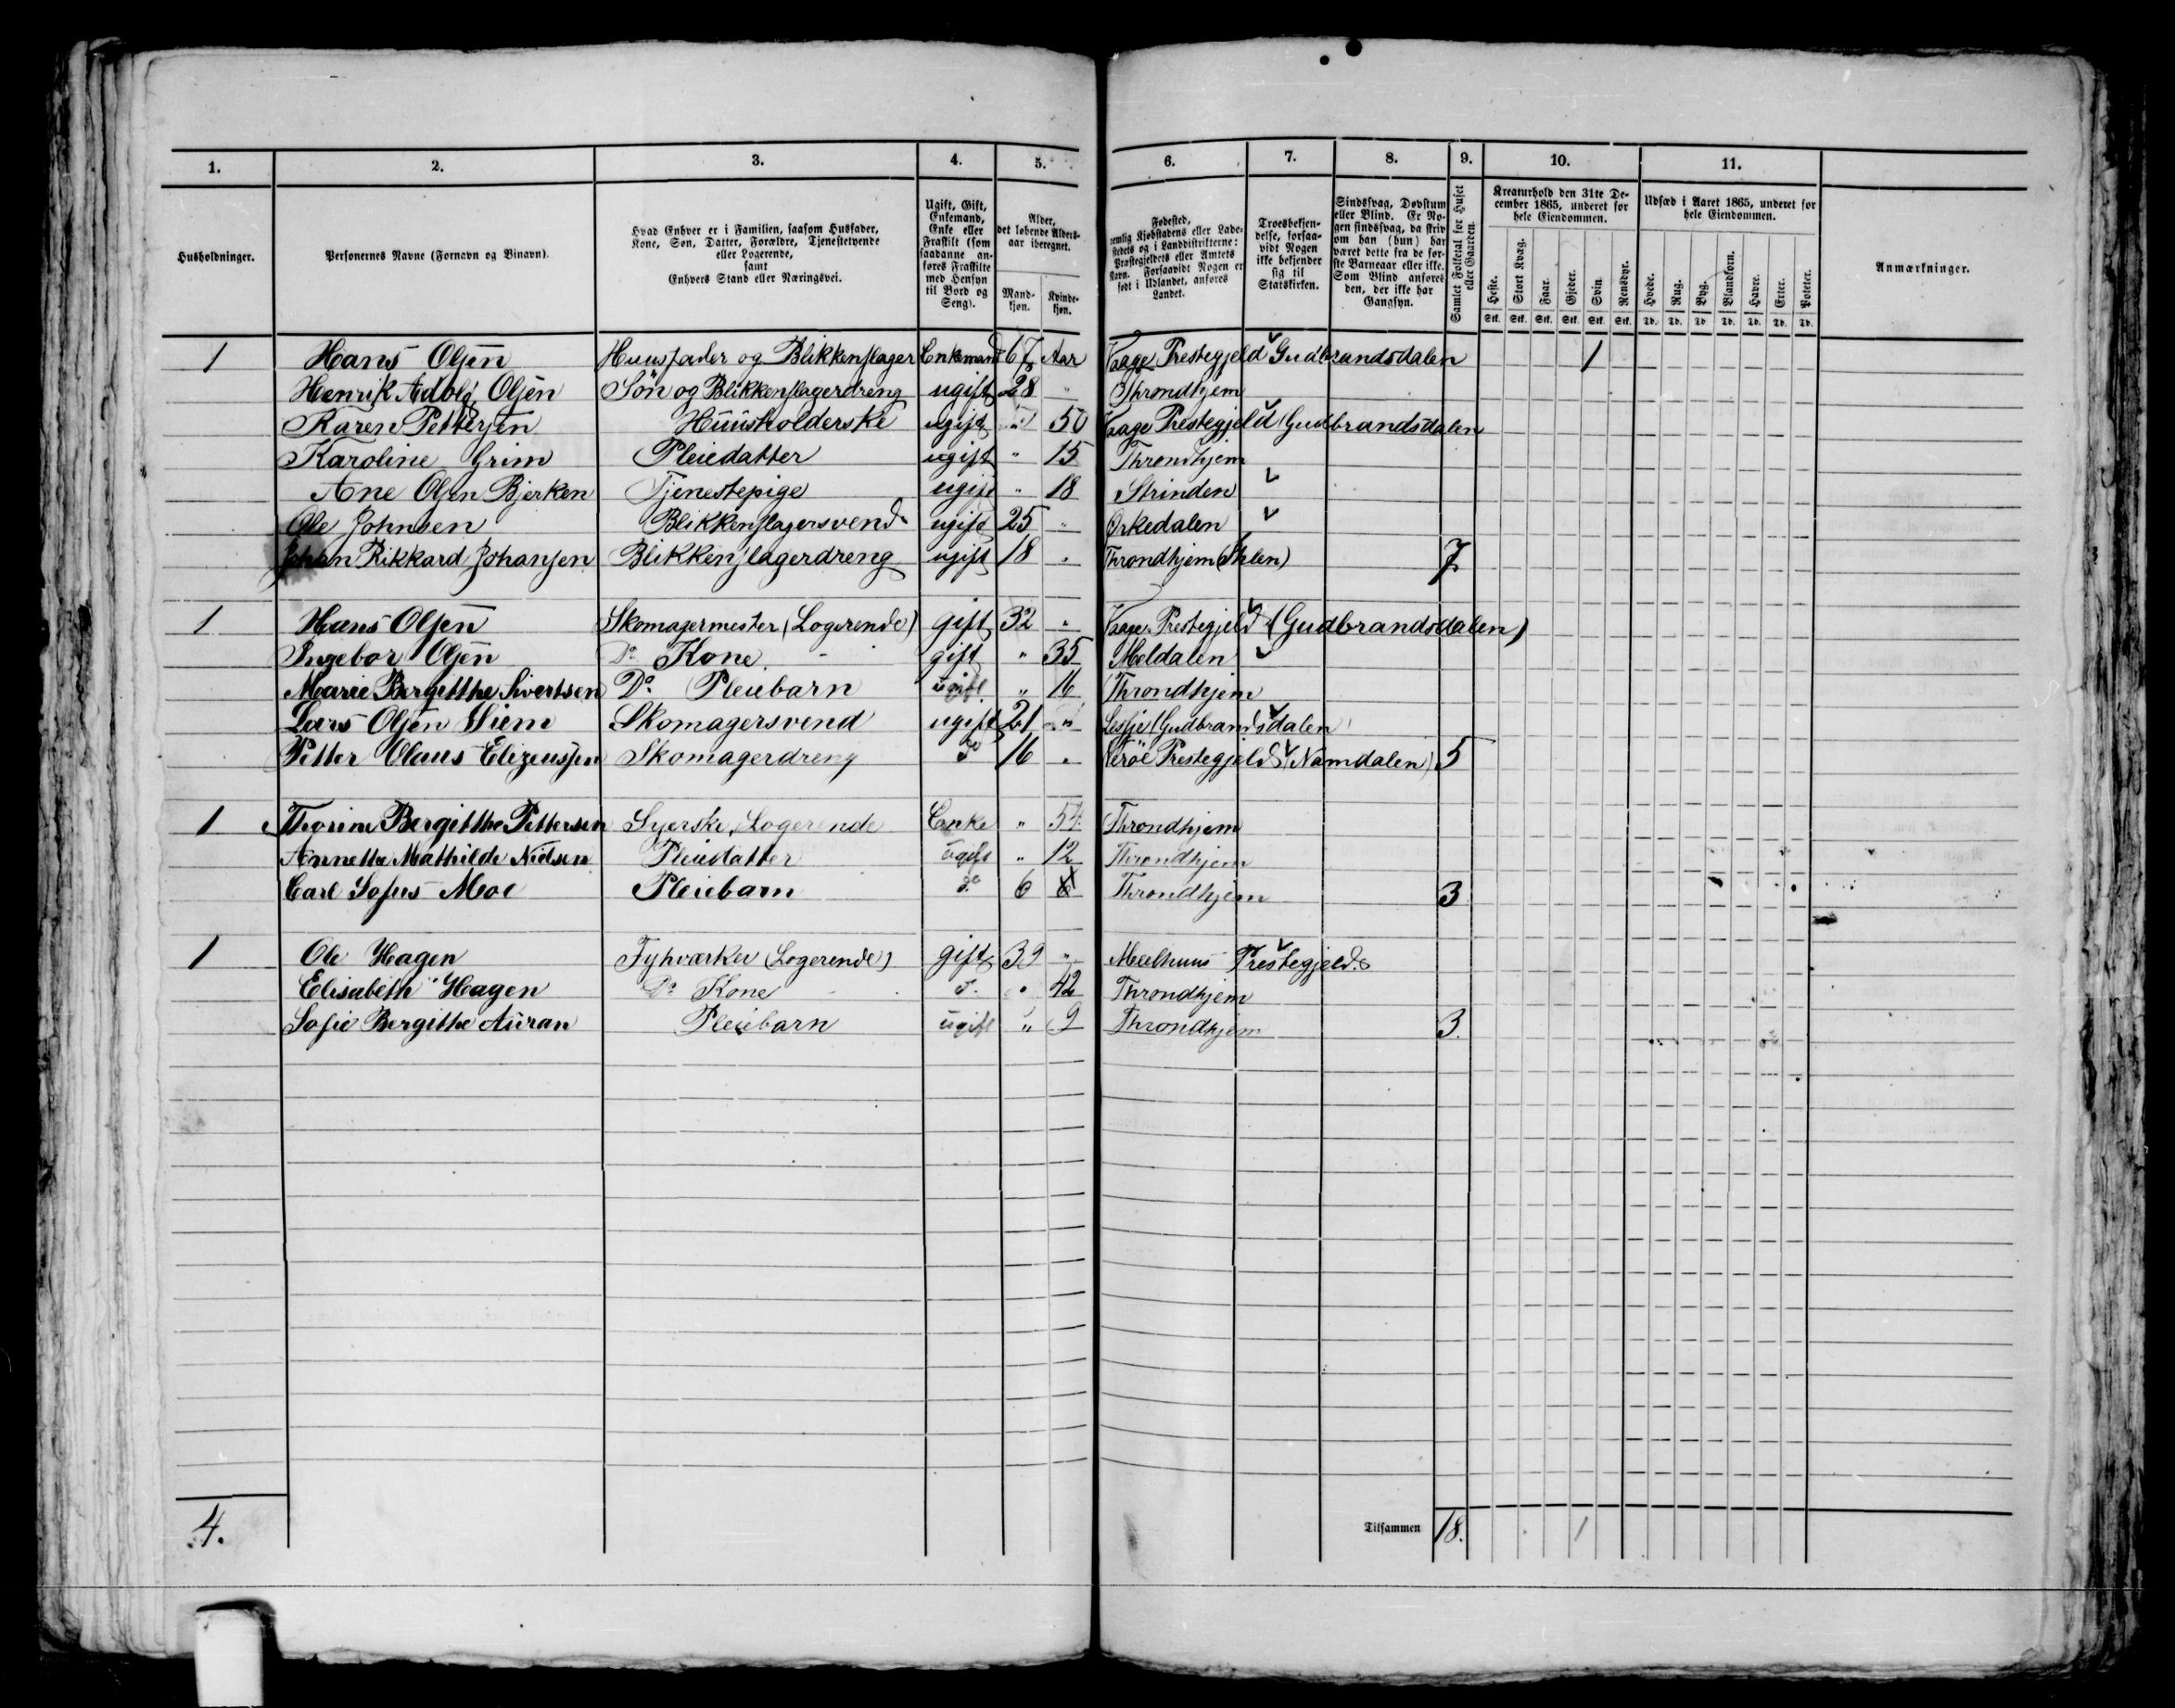 1. 2. 3. 4. 5. 6. 7. 8. 9. 10. 11.
Husholdninger.
Personernes Navne (Fornavn og Binavn).
Hvad Enhver er i Familien, saasom Husfader,
Kone, Søn, Datter, Forældre, Tjenestetyende
eller Logerende,
samt
Enhvers Stand eller Næringsvei.
Ugift, Gift,
Enkemand,
Enke eller
Fraskilt (som
saadanne an-
føres Fraskilte
med Hensyn
til Bord og
Seng).
Alder,
det løbende Alders-
aar iberegnet.
Mand-
kjøn.
Kvinde-
kjøn.
Fødested,
nemlig Kjøbstadens eller Lade-
stedets og i Landdistrikterne:
Præstegjeldets eller Amtets
Navn. Forsaavidt Nogen er
født i Udlandet, anføres
Landet.
Troesbekjen-
delse, forsaa-
vidt Nogen
ikke bekjender
sig til
Statskirken.
Sindssvag, Døvstum
eller Blind. Er No-
gen sindssvag, da skriv
om han (hun) har
været dette fra de før-
ste Barneaar eller ikke.
Som Blind anføres
den, der ikke har
Gangsyn.
Samlet Folketal for Huset
eller Gaarden.
Kreaturhold den 31te De-
cember 1865, underet for
hele Eiendommen.
Heste. Stort Kvæg. Faar. Gjeder. Svin. Rensdyr.
Stk. Stk. Stk. Stk. Stk. Stk.
Udsæd i Aaret 1865, underet for
hele Eiendommen.
Hvede. Rug. Byg. Blandkorn. Havre. Erter. Poteter.
Td. Td. Td Td. Td. Td. Td.
Anmærkninger.
1 Hans Olsen Huusfader og Blikkenslager Enkemand 67 Aar Vaage Prestegjeld Gudbrandsdalen 1
Henrik Adolf Olsen Sön og Blikkenslagerdreng ugift 28 " Throndhjem
Karen Pettersen Huusholderske ugift " 50 Vaage Prestegjeld (Gudbrandsdalen
Karoline Grim Pleiedatter ugift " 15 Throndhjem
Ane Olsen Bjerken Tjenestepige ugift " 18 Strinden
Ole Johnsen Blikkenslagersvend ugift 25 " Orkedalen
Johan Rikkard Johansen Blikkenslagerdreng ugift 18 " Throndhjem (Ihlen) 7
1 Hans Olsen Skomagermester (Logerende) gift 32 " Vaage Prestegjeld (Gudbrandsdalen)
Ingebor Olsen Do Kone gift " 35 Meldalen
Marie Bergitthe Sivertsen Do Pleiebarn ugift " 16 Throndhjem
Lars Olsen Siem Skomagersvend ugift 21 " Lessje (Gudbrandsdalen
Petter Olaus Elizeussen Skomagerdreng do 16 " Nerøe Prestegjeld (Namdalen) 5
1 Thorine Bergitthe Pettersen Syerske, Logerende Enke " 54 Throndhjem
Annette Mathilde Nielsen Pleiedatter ugift " 12 Throndhjem
Carl Sofus Moe Pleiebarn do 6 Throndhjem 3
1 Ole Hagen (Logerende) gift 39 " Meelhuus Prestegjeld.
Elisabeth Hagen Do Kone " 42 Throndhjem
Sofie Bergithe Auran Pleiebarn ugift " 9 Throndhjem 3.
4. Tilsammen 18. 1